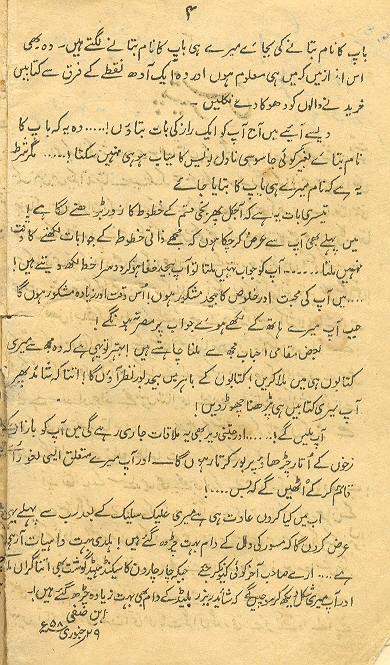 ۴
باپ کا نام بتانے کی بجائے میرے ہی باپ کا نام بتانے لگتے ہیں۔ وہ بھی
اس انداز میں کہ میں ہی معلوم ہوں اور وہ ایک آدھ نقطے کے فرق سے کتابیں
خریدنے والوں کو دھوکا دے نکلیں۔
ویسے آئیے میں آج آپ کو ایک راز کی بات بتاؤں!..... وہ یہ کہ باپ کا
نام بتائے بغیر کوئی جاسوسی ناول نویس کامیاب ہو ہی نہیں سکتا!..... مگر شرط
یہ ہے کہ نام میرے ہی باپ کا بتایا جائے
تیسری بات یہ ہے کہ آجکل پھر نجی قسم کے خطوط کا زور بڑھنے لگا ہے!
میں پہلے بھی آپ سے عرض کر چکا ہوں کہ مجھے ذاتی خطوط کے جوابات لکھنے کا وقت
نہیں ملتا....... آپ کو جواب نہیں ملتا تو آپ بیحد خفا ہو کر دوسرا خط لکھ دیتے ہیں!
.... میں آپ کی محبت اور خلوص کا بیحد مشکور ہوں! اُس وقت اور زیادہ مشکور ہوں گا
جب آپ میرے ہاتھ کے لکھے ہوئے جواب پر مصر نہ ہونگے!
بعض مقامی احباب مجھ سے ملنا چاہتے ہیں! بہتر تو یہی ہے کہ وہ مجھ سے میری
کتابوں ہی میں ملا کریں! کتابوں کے باہر میں بیحد بور نظر آؤں گا! اتنا کہ شائد پھر
آپ میری کتابیں ہی پڑھنا چھوڑ دیں!
آپ ملیں گے!...... اور جتنی دیر بھی یہ ملاقات جاری رہے گی میں آپ کو بازار کے
نرخوں کے اُتار چڑھاؤ پر بور کرتا رہوں گا.... اور آپ میرے متعلق ایسی لغو رائے
قائم کر کے اُٹھیں گے کہ بس....!
اب میں کیا کروں عادت ہی ہے میری علیک سلیک کے بعد سب سے پہلے یہی
عرض کروں گا کہ مسور کی دال کے دام بہت بڑھ گئے ہیں! ہلدی بہت واہیات آرہی
ہے.... ارے صاحب آخر کوئی کیونکر جئے جبکہ چار چار دن کا سیکنڈ ہینڈ گوشت بھی اتنا گراں
اور آپ میری شکل دیکھ کر سوچیں گے کہ شائد ریزر بلیڈ کے دام بھی بہت زیادہ چڑھ گئے ہیں!
ابن صفی
۲۹ جنوری ۵۸ء